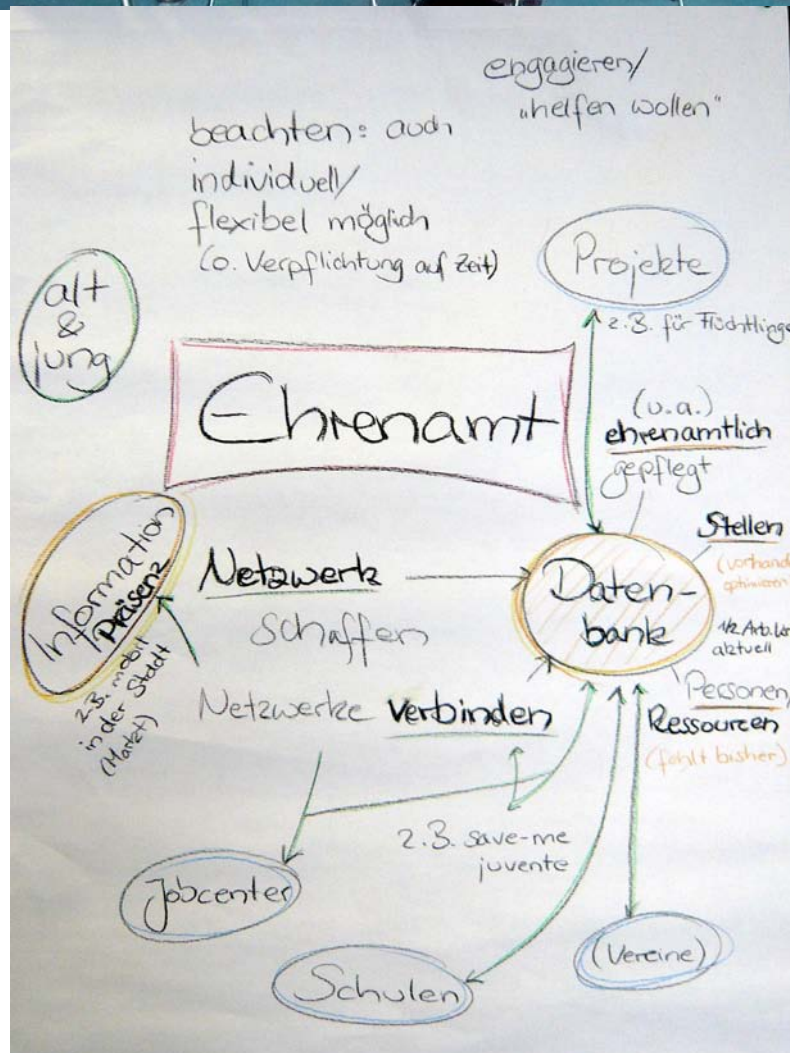 engagieren/
„helfen wollen"
beachten: auch
individuell/
flexibel möglich
(o. Verpflichtung auf Zeit)
alt
&
jung
Projekte
z.B. für Flüchtlinge
Ehrenamt
(u.a.)
ehrenamtlich
gepflegt
Information
Präsenz
z.B. mobil
in der Stadt
(Markt)
Netzwerk
schaffen
Netzwerke verbinden
Daten-
bank
Stellen
optimieren
aktuell
Personen/
Ressourcen
(fehlt bisher)
z.B. save-me
juvente
Jobcenter
Schulen
(Vereine)